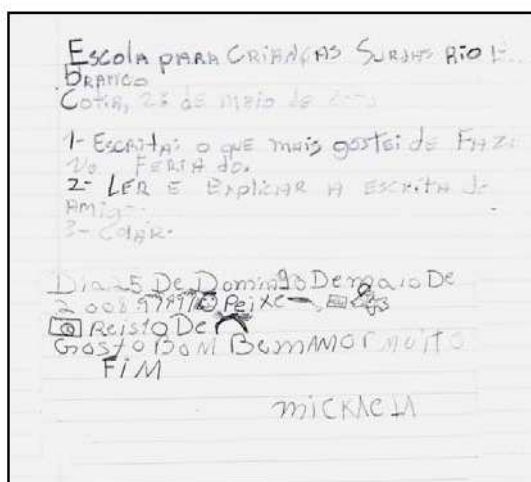 Escola para Crianças Surdas Rio
Branco
Cotia, 28 de maio de
1- Escrita: o que mais gostei de Faze
No Feriado.
2- Ler e Explicar a escrita do
Amigo.
3- Colar.
Dia 25 De Domingo De maio De
2008 Peixe
De
Gosto Bom Bem Amor muito
Fim